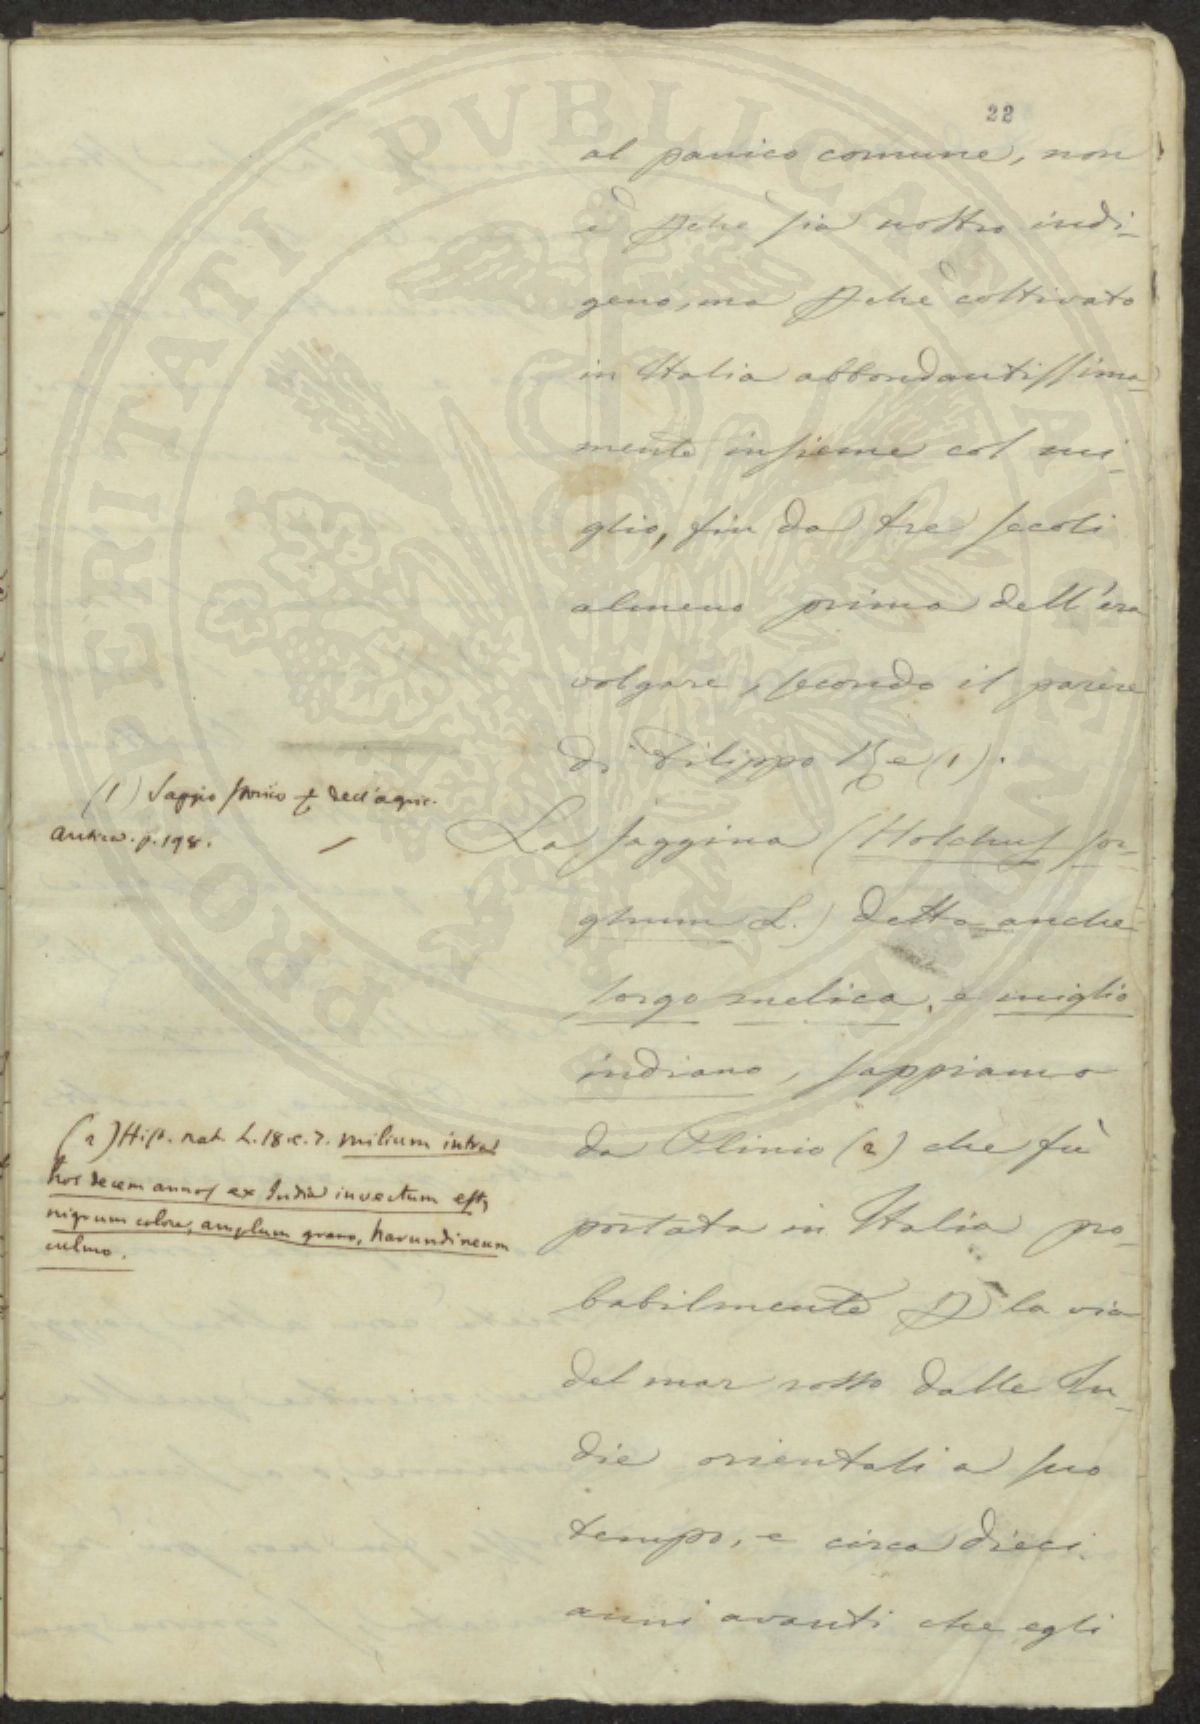 22
al panico comune, non
è pchè sia nostro indi-
geno, ma pchè coltivato
in Italia abbondantissima-
mente insieme col mi-
glio, fin da tre secoli
almeno prima dell'era
volgare, secondo il parere
di Filippo Re (1).
La saggina (Holchus sor-
ghum L.) detta anche
sorgo melica, e miglio
indiano, sappiamo
da Plinio (2) che fù
portata in Italia pro-
babilmente p la via
del mar rosso dalle In-
die orientali a suo
tempo, e circa dieci
anni avanti che egli
(1) Saggio storico dell'agric.
antica. p. 198.
(2) Hist. nat. L. 18. c. 7. milium intra
hos decem annos ex India invectum est,
nigrum colore, amplum grano, harundineum
culmo.
PROSPERITATI PVBLICAE AVGENDAE